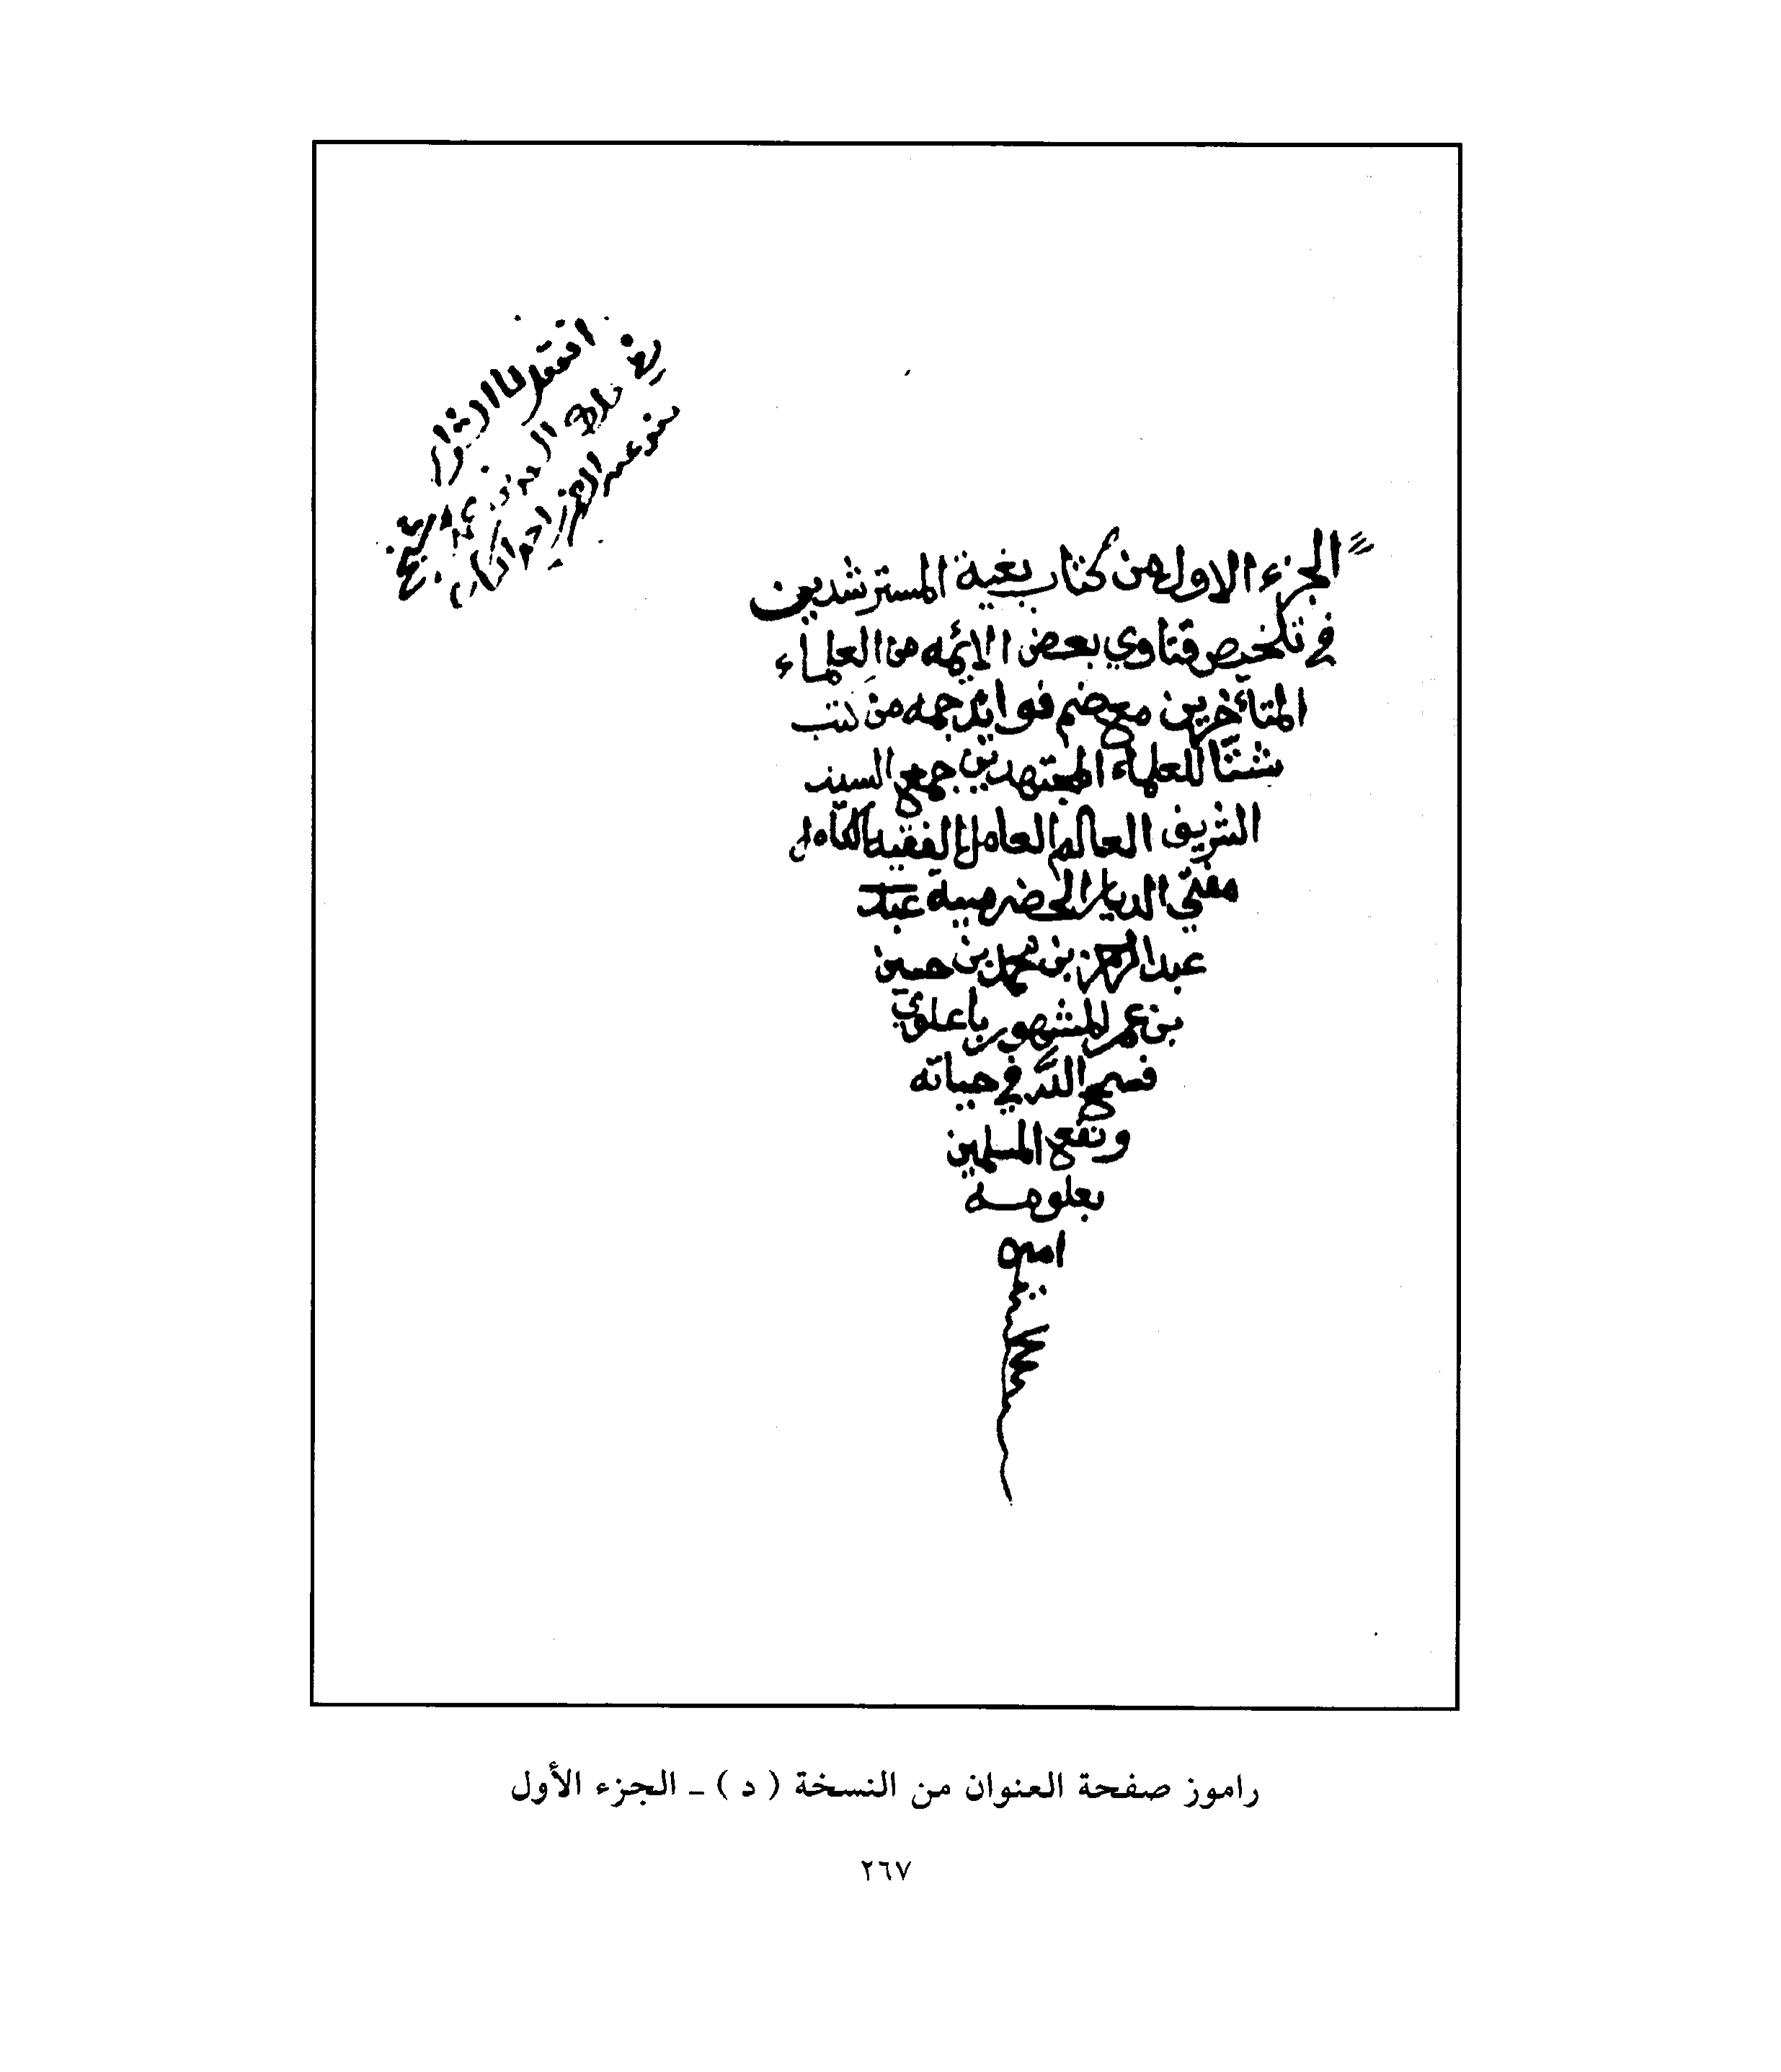 الجزء الاول من كتاب بغية المسترشدين
في تلخيص فتاوي بعض الائمه من العلماء
المتأخرين مع ضم فوائد جمه من كتب
شتتا للعلماء المجتهدين جمع السيد
الشريف العالم العامل الفقيه الكامل
مفتي الديار الحضرمية عبد
عبد الرحمن بن محمد بن حسين
بن عمر المشهور باعلوي
فسح الله في حياته
ونفع المسلمين
بعلومه
امين
راموز صفحة العنوان من النسخة ( د ) ـ الجزء الأول
٢٦٧